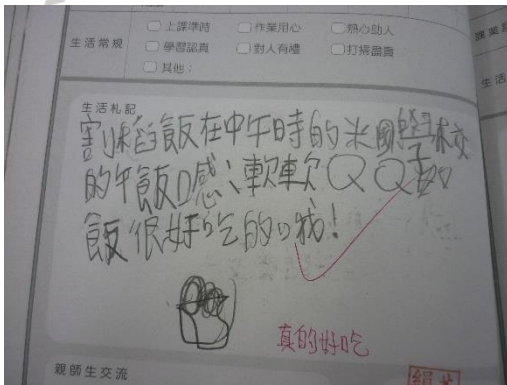 生活常規
上課準時 作業用心 熱心助人
學習認真 對人有禮 打掃盡責
其他：
生活
生活札記
割稻飯在中午時的米國學校
的午飯口感軟軟QQ
飯很好吃的哦！
真的好吃
親師生交流